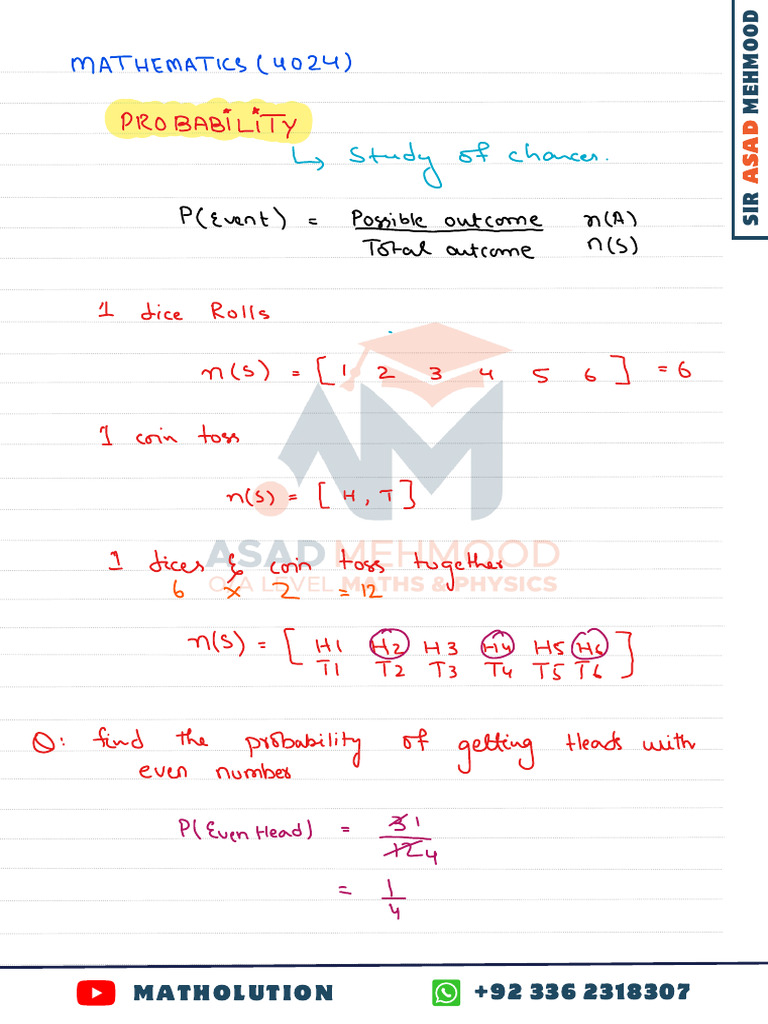 SIR ASAD MEHMOOD
MATHEMATICS (4024)
PROBABILITY
↳ Study of chances.
P(Event) = Possible outcome n(A)
Total outcome n(S)
1 dice Rolls
n(S) = [1 2 3 4 5 6] = 6
1 coin toss
n(S) = [H, T]
ASAD MEHMOOD
1 dices & coin toss together
O/A LEVEL MATHS & PHYSICS
6 x 2 = 12
n(S) = [H1 H2 H3 H4 H5 H6
T1 T2 T3 T4 T5 T6]
Q: find the probability of getting Heads with
even number
P(Even Head) = 3 1
12 4
= 1
4
MATHOLUTION +92 336 2318307